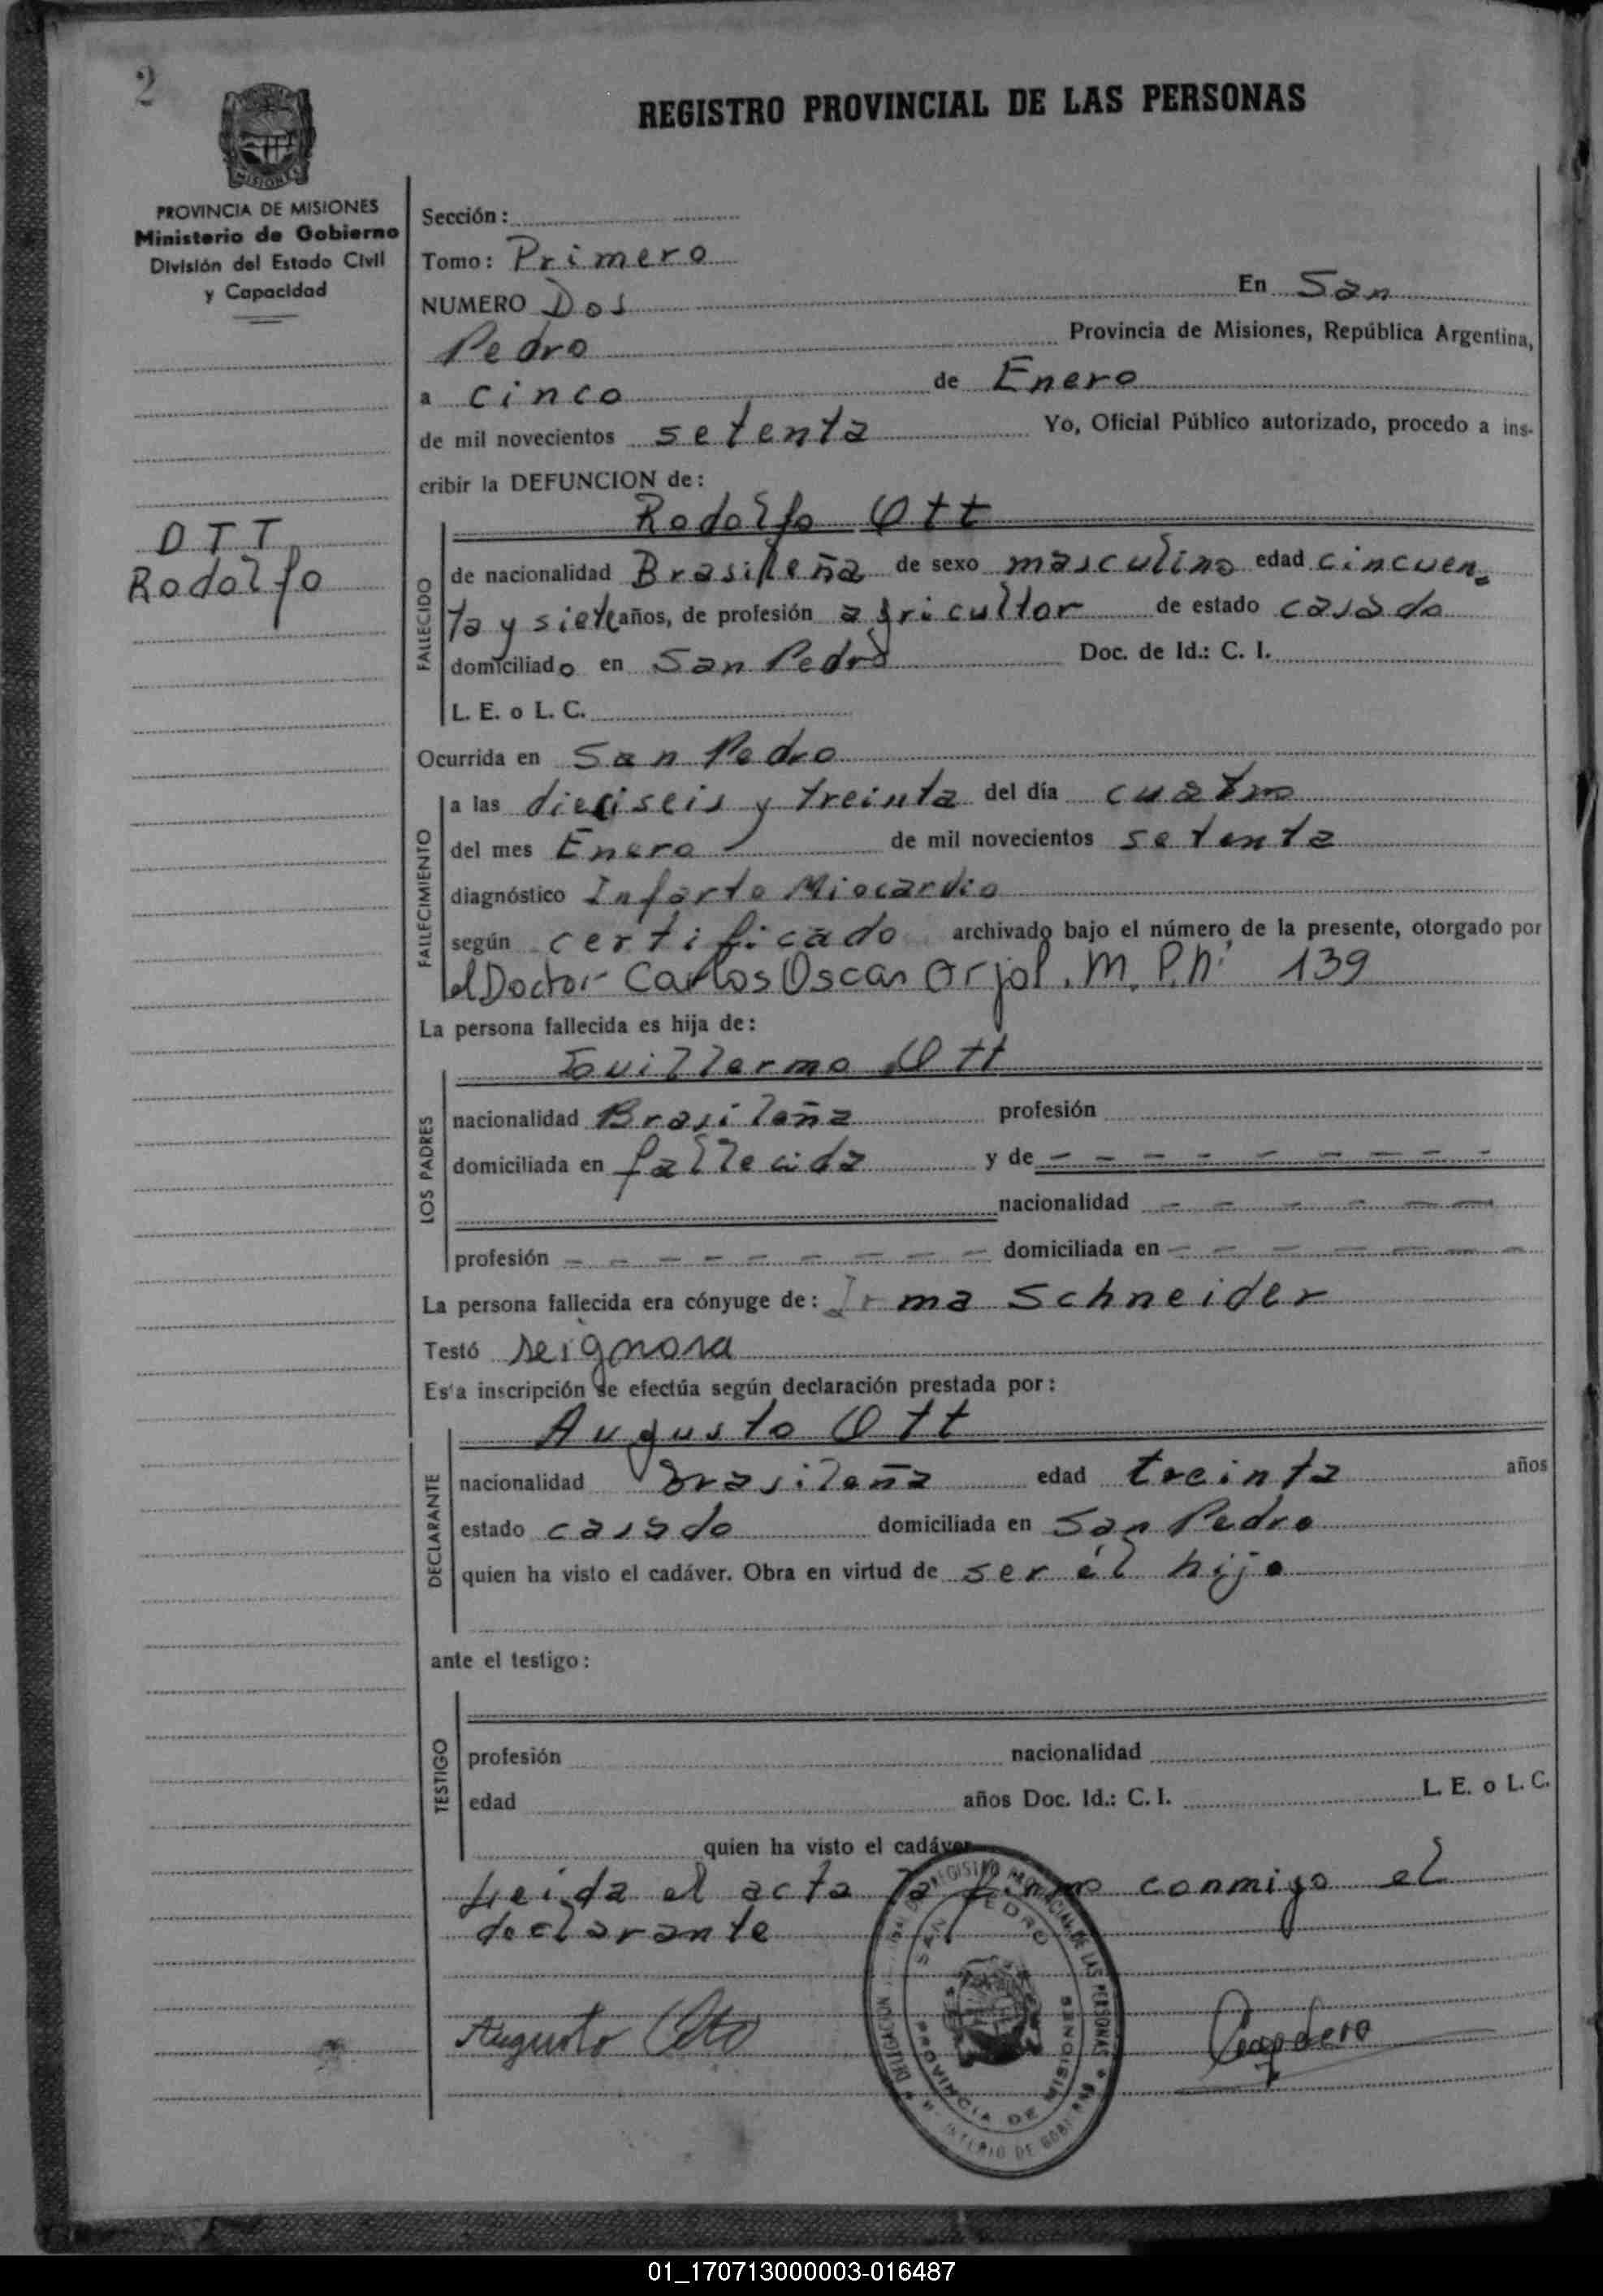 2
REGISTRO PROVINCIAL DE LAS PERSONAS
MISIONES
PROVINCIA DE MISIONES
Ministerio de Gobierno
División del Estado Civil
y Capacidad
OTT
Rodolfo
Sección:
Tomo: Primero
NUMERO Dos En San
Pedro Provincia de Misiones, República Argentina,
a cinco de Enero
de mil novecientos setenta Yo, Oficial Público autorizado, procedo a ins-
cribir la DEFUNCION de:
Rodolfo Ott
FALLECIDO
de nacionalidad Brasileña de sexo masculino edad cincuen-
ta y siete años, de profesión agricultor de estado casado
domiciliado en San Pedro Doc. de Id.: C. I.
L. E. o L. C.
Ocurrida en San Pedro
FALLECIMIENTO
a las dieciseis y treinta del día cuatro
del mes Enero de mil novecientos setenta
diagnóstico Infarto Miocardio
según certificado archivado bajo el número de la presente, otorgado por
el Doctor Carlos Oscar Orjol. M. P. Nº 139
La persona fallecida es hija de:
Guillermo Ott
LOS PADRES
nacionalidad Brasileña profesión
domiciliada en fallecida y de - - - - - - - - -
nacionalidad - - - - - -
profesión - - - - - - - - - domiciliada en - - - - - - -
La persona fallecida era cónyuge de: Irma Schneider
Testó se ignora
Esta inscripción se efectúa según declaración prestada por:
Augusto Ott
DECLARANTE
nacionalidad Brasileña edad treinta años
estado casado domiciliada en San Pedro
quien ha visto el cadáver. Obra en virtud de ser él hijo
ante el testigo:
TESTIGO
profesión nacionalidad
edad años Doc. Id.: C. I. L. E. o L. C.
quien ha visto el cadáver
Leida el acta la firma conmigo el
declarante
Augusto Otto
REGISTRO PROVINCIAL DE LAS PERSONAS
SAN PEDRO
PROVINCIA DE MISIONES
01_170713000003-016487